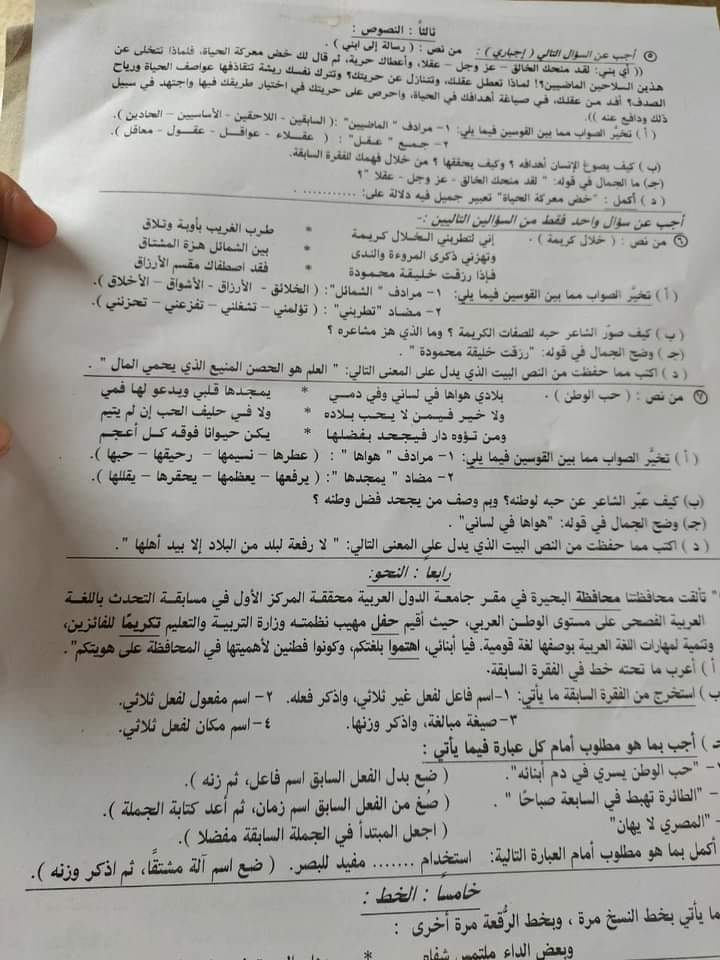 ثالثاً : النصوص :
٥ أجب عن السؤال التالي ( إجباري ) : من نص : ( رسالة إلى ابني ) .
(( أي بني: لقد منحك الخالق – عز وجل – عقلا، وأعطاك حرية، ثم قال لك خض معركة الحياة، فلماذا تتخلى عن
هذين السلاحين الماضيين؟! لماذا تعطل عقلك، وتتنازل عن حريتك؟ وتترك نفسك ريشة تتقاذفها عواصف الحياة ورياح
الصدف؟ أفد من عقلك، في صياغة أهدافك في الحياة، واحرص على حريتك في اختيار طريقك فيها واجتهد في سبيل
ذلك ودافع عنه )).
( أ ) تخيَّر الصواب مما بين القوسين فيما يلي: ١- مرادف "الماضيين" :( السابقين – اللاحقين – الأساسيين – الحادين).
٢- جمع "عقل" : ( عقلاء – عواقل – عقول – معاقل ).
(ب) كيف يصوغ الإنسان أهدافه ؟ وكيف يحققها ؟ من خلال فهمك للفقرة السابقة.
(جـ) ما الجمال في قوله: " لقد منحك الخالق - عز وجل - عقلا "؟
( د ) أكمل : "خض معركة الحياة" تعبير جميل فيه دلالة على: ............
أجب عن سؤال واحد فقط من السؤالين التاليين :-
٦ من نص : ( خلال كريمة ) .
إني لتطربني الخلال كريمة * طرب الغريب بأوبة وتلاق
وتهزني ذكرى المروءة والندى * بين الشمائل هزة المشتاق
فإذا رزقت خليقة محمودة * فقد اصطفاك مقسم الأرزاق
( أ ) تخيَّر الصواب مما بين القوسين فيما يلي: ١- مرادف "الشمائل": ( الخلائق - الأرزاق - الأشواق – الأخلاق ).
٢- مضاد "تطربني" : ( تؤلمني – تشغلني – تفزعني – تحزنني ).
( ب ) كيف صوّر الشاعر حبه للصفات الكريمة ؟ وما الذي هز مشاعره ؟
(جـ ) وضح الجمال في قوله: "رزقت خليقة محمودة " .
( د ) اكتب مما حفظت من النص البيت الذي يدل على المعنى التالي: " العلم هو الحصن المنيع الذي يحمي المال " .
٧ من نص : ( حب الوطن ) .
بلادي هواها في لساني وفي دمي * يمجدها قلبي ويدعو لها فمي
ولا خير فيمن لا يحب بلاده * ولا في حليف الحب إن لم يتيم
ومن تؤوه دار فيجحد بفضلها * يكن حيوانا فوقه كل أعجم
( أ ) تخيَّر الصواب مما بين القوسين فيما يلي: ١- مرادف " هواها " : ( عطرها – نسيمها – رحيقها – حبها ).
٢- مضاد "يمجدها ": ( يرفعها – يعظمها – يحقرها – يقللها ).
(ب) كيف عبّر الشاعر عن حبه لوطنه؟ وبم وصف من يجحد فضل وطنه ؟
(جـ) وضح الجمال في قوله: "هواها في لساني" .
( د ) اكتب مما حفظت من النص البيت الذي يدل على المعنى التالي: " لا رفعة لبلد من البلاد إلا بيد أهلها " .
رابعاً : النحو:
" تألقت محافظتنا محافظة البحيرة في مقر جامعة الدول العربية محققة المركز الأول في مسابقة التحدث باللغة
العربية الفصحى على مستوى الوطن العربي، حيث أقيم حفل مهيب نظمته وزارة التربية والتعليم تكريمًا للفائزين،
وتنمية لمهارات اللغة العربية بوصفها لغة قومية. فيا أبنائي، اهتموا بلغتكم، وكونوا فطنين لأهميتها في المحافظة على هويتكم".
أ ) أعرب ما تحته خط في الفقرة السابقة.
ب) استخرج من الفقرة السابقة ما يأتي: ١-اسم فاعل لفعل غير ثلاثي، واذكر فعله. ٢- اسم مفعول لفعل ثلاثي.
٣-صيغة مبالغة، واذكر وزنها. ٤- اسم مكان لفعل ثلاثي.
جـ) أجب بما هو مطلوب أمام كل عبارة فيما يأتي :
- "حب الوطن يسري في دم أبنائه". ( ضع بدل الفعل السابق اسم فاعل، ثم زنه ).
- "الطائرة تهبط في السابعة صباحًا " . ( صُغ من الفعل السابق اسم زمان، ثم أعد كتابة الجملة ).
- "المصري لا يهان" ( اجعل المبتدأ في الجملة السابقة مفضلا ).
أكمل بما هو مطلوب أمام العبارة التالية: استخدام ....... مفيد للبصر. ( ضع اسم آلة مشتقًّا، ثم اذكر وزنه ).
خامساً : الخط :
ما يأتي بخط النسخ مرة ، وبخط الرُّقعة مرة أخرى :
وبعض الداء ملتمس شفاه *